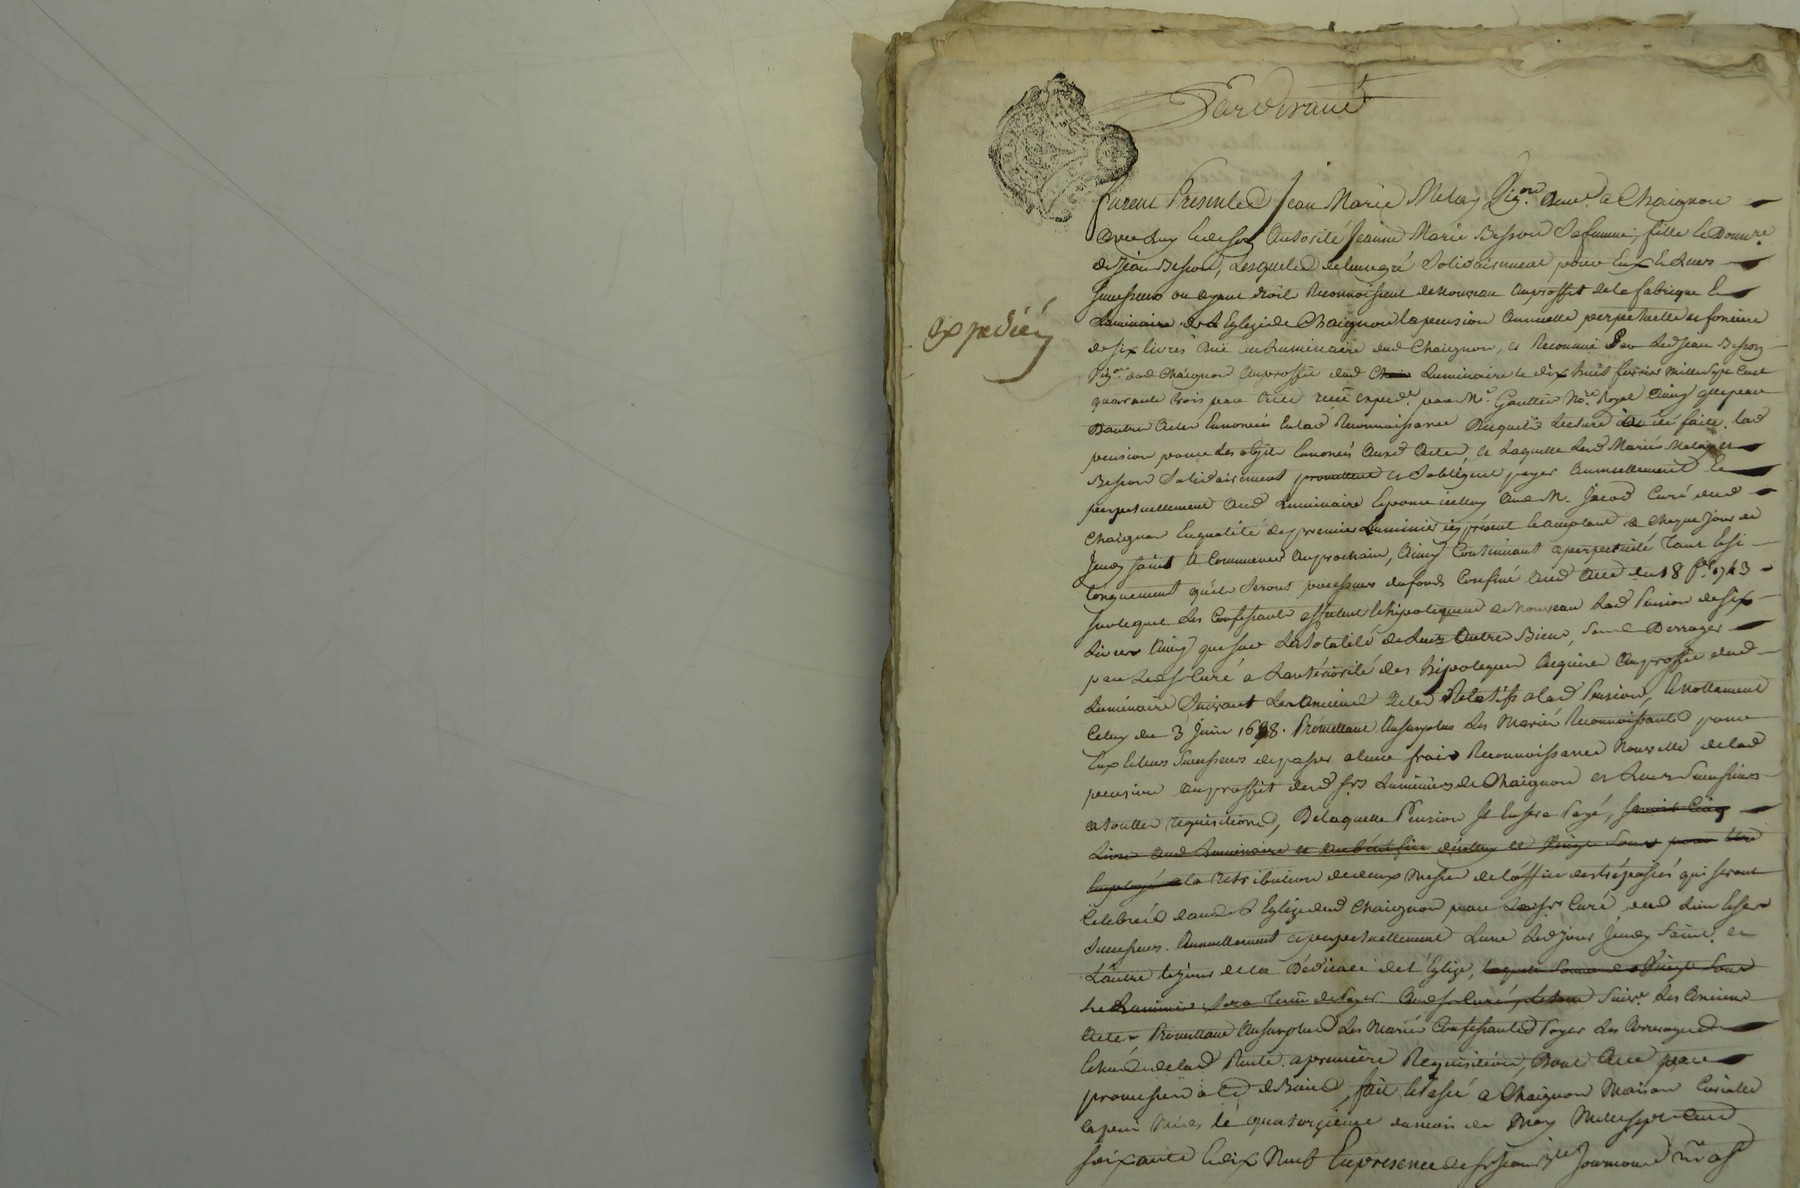 Pardevant
furent Présents Jean Marie Melay Vig.on dem.t a Chaignon
avec luy et de son autorité Jeanne Marie Besson sa femme, fille et Donat.re
de Jean Besson, lesquels de leur gré solidairement pour eux et leurs
successeurs ou ayant droit Reconnoissent de nouveau au proffit de la fabrique et
Luminaire de l'Eglize de Chaignon la pension annuelle perpetuelle et fonciere
expedié
de six livres due au Luminaire dud Chaignon, et Reconnue par led Jean Besson
Vig.on dud Chaignon au proffit dud Luminaire le dix huit fevrier mille sept cent
quarante trois par acte reçu expéd.e par M.e Gaultier No.re Royal ainsy que par
d'autres actes Enoncés en lad Reconnoissance desquels lecture a été faite, lad
pension pour les objets Enoncés aux d actes, et laquelle lesd Mariés Melay et
Besson solidairement promettent et s'obligent payer annuellement et
perpetuellement aud Luminaire et pour iceluy aud M. Jacod Curé dud
Chaignon En qualité de premier Luminier icy présent et acceptant a chaque jour de
Jeudy saint a commencer au prochain, ainsy continuant a perpetuité tant et si
longuement qu'ils seront possesseurs du fonds confiné aud acte du 18 f.er 1743
sur lequel les confessants affectent et hipotequent de nouveau lad Pension de six
livres ainsy que sur la totalité de leurs autres Biens, sans Derroger
par led s.r Curé a l'antériorité des hipoteques acquises au proffit dud
Luminaire suivant les anciens actes Relatifs a lad Pension, et nottament
Celuy du 3 Juin 1698. Promettant au surplus les Mariés Reconnoissants pour
Eux et leurs successeurs de passer a leurs frais Reconnoissance Nouvelle de lad
pension au proffit desd s.rs Luminiers de Chaignon et leurs successeurs
a toutes requisitions, De laquelle Pension il en sera Payé, savoir Cinq
Livres aud Luminaire et au bénéfice d'iceluy et Vingt sous pour être
Employé a la retribution de deux Messes de l'office des trépassés qui seront
Celebrées dans l'Eglize dud Chaignon par led s.r Curé dud lieu et ses
successeurs. Annuellement et perpetuellement l'une led jour Jeudy saint, et
L'autre le jour de la Dédicace de l'Eglize, laquelle somme de Vingt sous
le Luminier sera tenu de Payer aud s.r Curé, suiv.t les anciens
actes. Promettant au surplus les Mariés Confessants Payer les arrerages
de lad Rente a premiere Requisition, Dont acte par
promesses &c de Biens, fait et passé a Chaignon Maison Curiale
après midy le quatorzieme du mois de May Mille sept cent
soixante et dix Neuf En presence de s.r Jean B.te Journoud